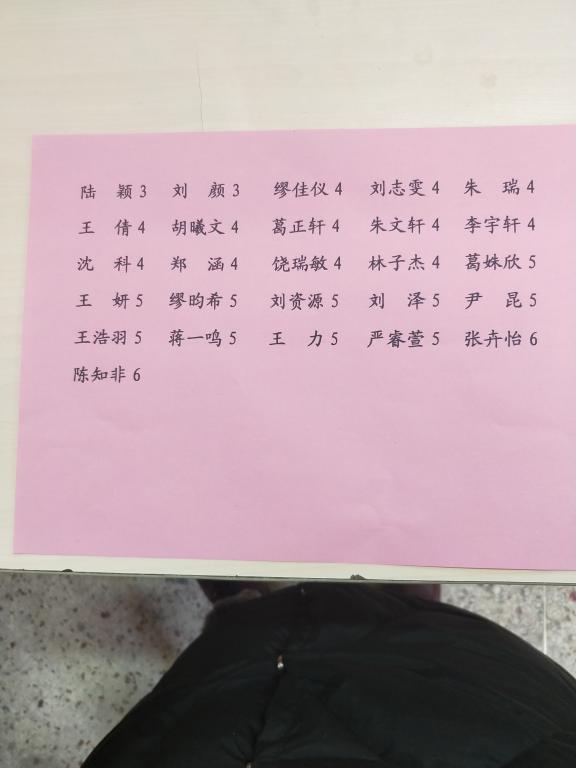 陆　颖 3　刘　颜 3　缪佳仪 4　刘志雯 4　朱　瑞 4
王　倩 4　胡曦文 4　葛正轩 4　朱文轩 4　李宇轩 4
沈　科 4　郑　涵 4　饶瑞敏 4　林子杰 4　葛姝欣 5
王　妍 5　缪昀希 5　刘资源 5　刘　泽 5　尹　昆 5
王浩羽 5　蒋一鸣 5　王　力 5　严睿萱 5　张卉怡 6
陈知非 6